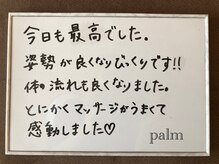 今日も最高でした。
姿勢が良くなりびっくりです!!
体の流れも良くなりました。
とにかくマッサージがうまくて
感動しました♡
palm